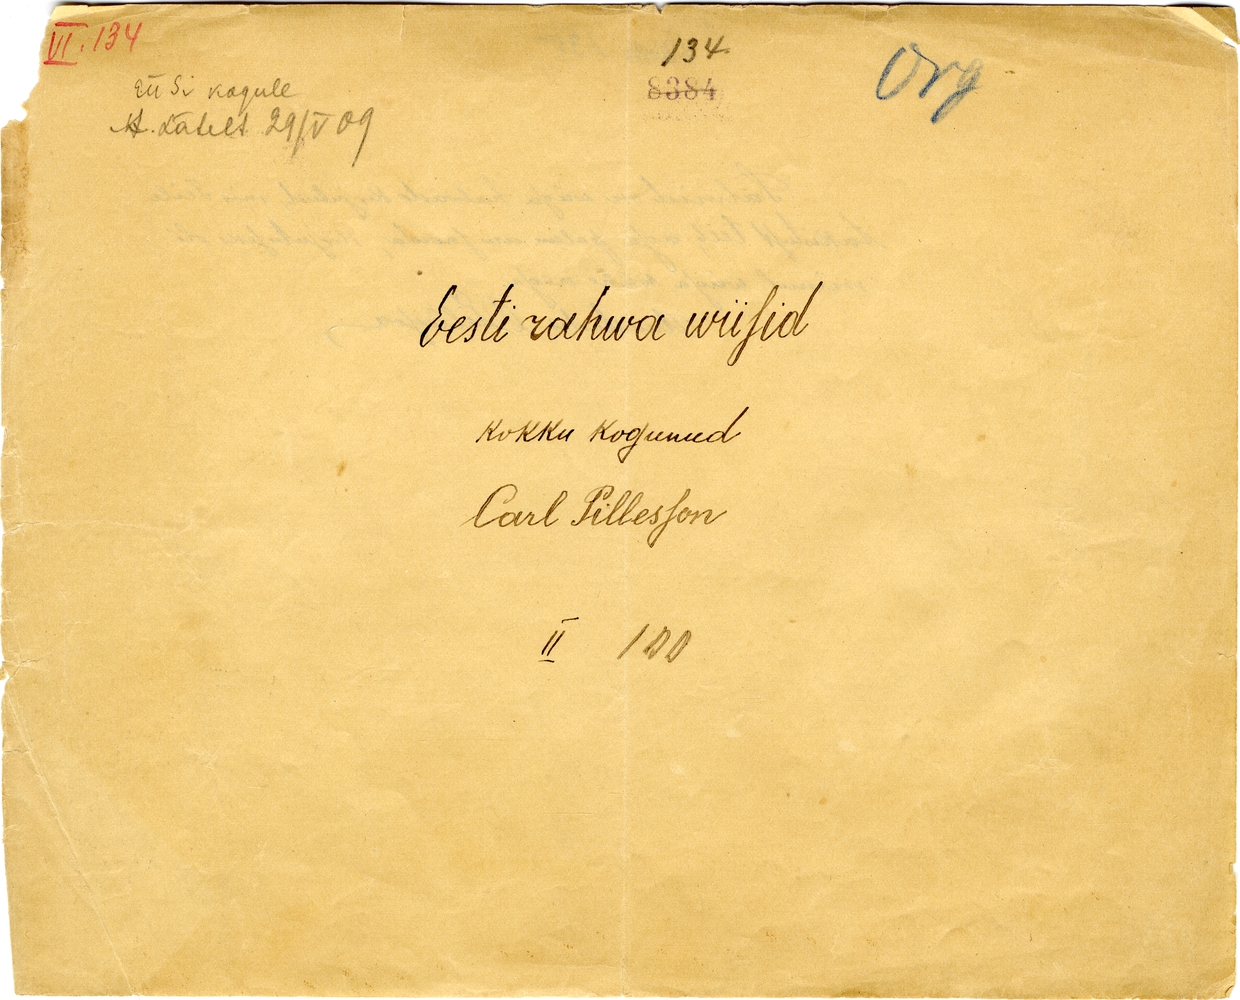 VI. 134
134
8384
Org
EÜSi kogule
A. Lätelt 29/V 09
Eesti rahwa wiiſid
kokku kogunud
Carl Pillesſon
II 100